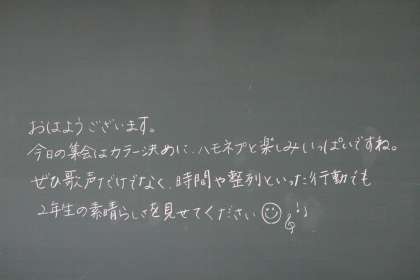 おはようございます。
今日の集会はカラー決めに、ハモネプと楽しみいっぱいですね。
ぜひ歌声だけでなく、時間や整列といった行動でも
2年生の素晴らしさを見せてください